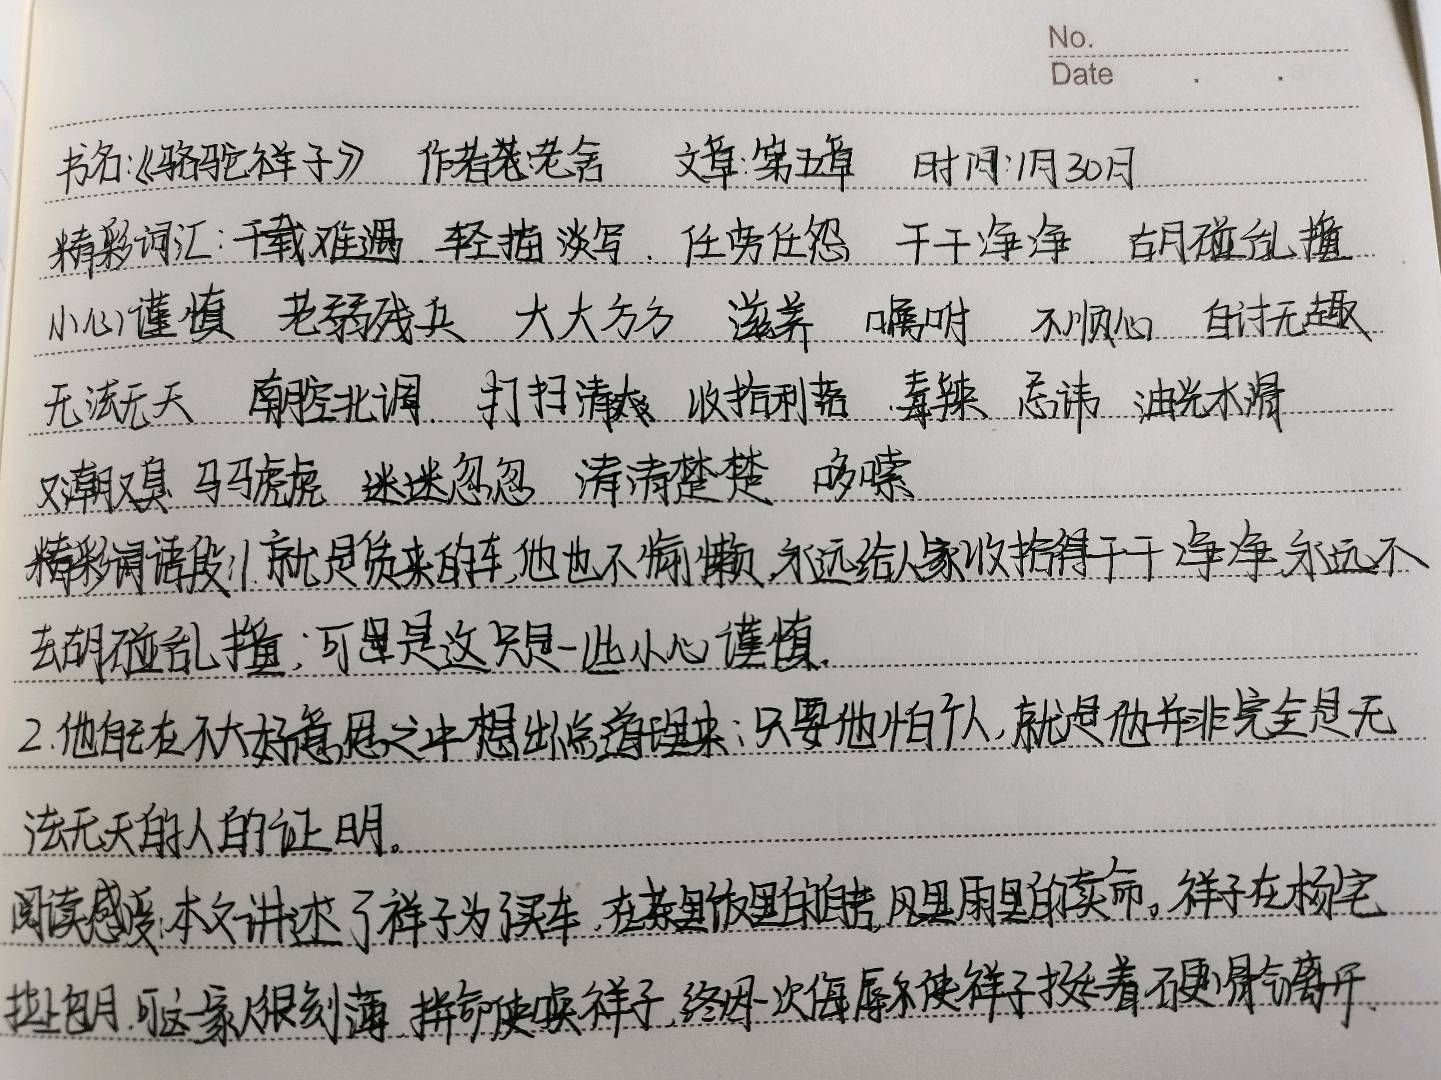 No.
Date
书名:《骆驼祥子》 作者:老舍 文章:第五章 时间:1月30日
精彩词汇:千载难遇 轻描淡写 任劳任怨 干干净净 胡碰乱撞
小心谨慎 老弱残兵 大大方方 滋养 嘱咐 不顺心 自讨无趣
无法无天 南腔北调 打扫清爽 收拾利落 毒辣 忌讳 油光水滑
又潮又臭 马马虎虎 迷迷忽忽 清清楚楚 哆嗦
精彩词语段:1.就是赁来的车,他也不偷懒,永远给人家收拾得干干净净,永远不
去胡碰乱撞;可是这只是一些小心谨慎.
2.他自己在不大好意思之中想出点道理来:只要他怕个人,就是他并非完全是无
法无天的人的证明。
阅读感受:本文讲述了祥子为了买车,在茶里饭里的自苦,风里雨里的卖命。祥子在杨宅
拉上包月,可这一家人很刻薄,拼命使唤祥子,终因一次侮辱使祥子挺着硬骨气离开.